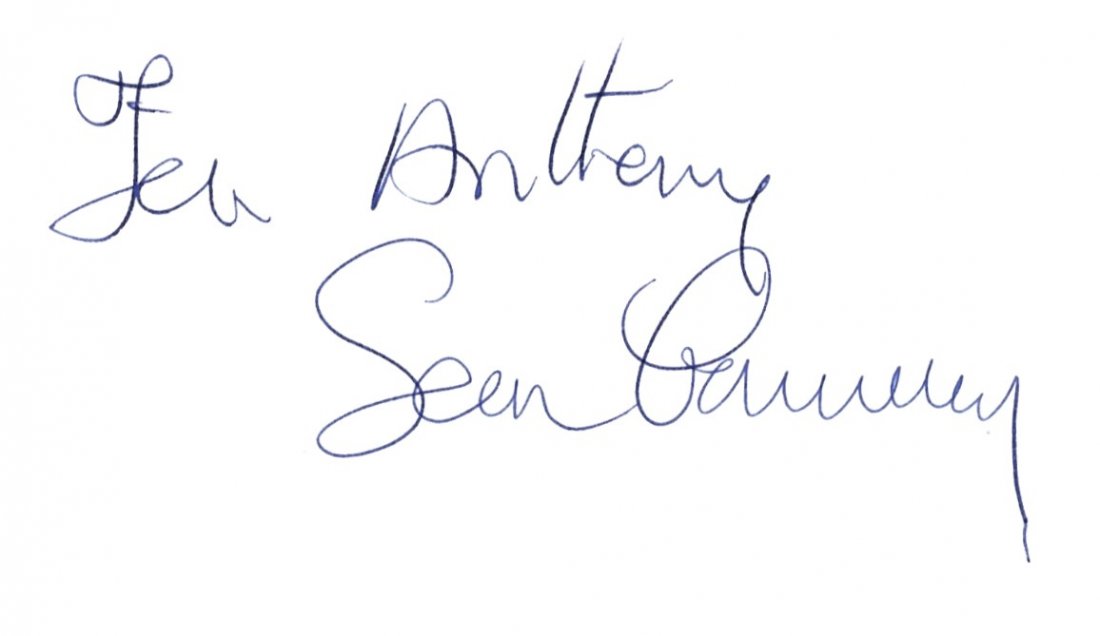 For Anthony
Sean Connery